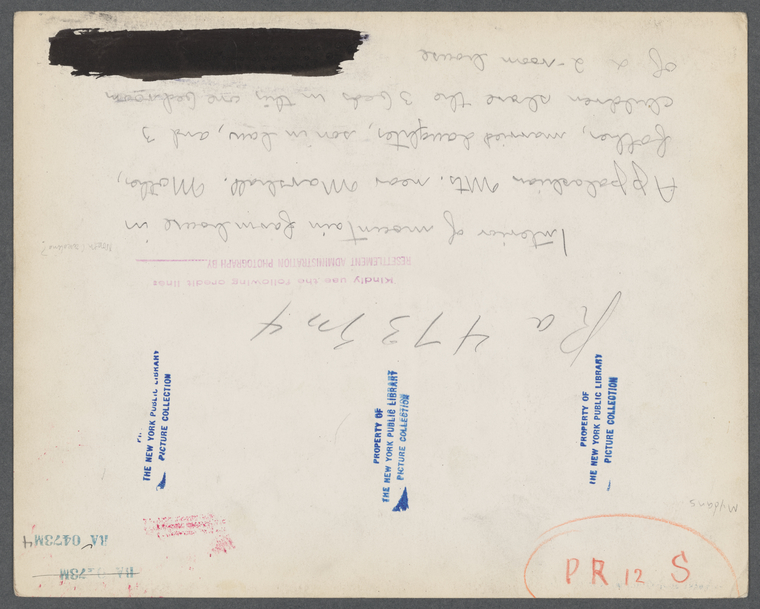 Interior of mountain farmhouse in
Appalachian Mts. near Marshall. Mother,
father, married daughter, son in law, and 3
children share the 3 beds in this one bedroom
of a 2-room house
North Carolina?
Kindly use the following credit line:
RESETTLEMENT ADMINISTRATION PHOTOGRAPH BY
Ra 473 M 4
THE NEW YORK PUBLIC LIBRARY
PICTURE COLLECTION
PROPERTY OF
THE NEW YORK PUBLIC LIBRARY
PICTURE COLLECTION
PROPERTY OF
THE NEW YORK PUBLIC LIBRARY
PICTURE COLLECTION
Mydans
RA 0473M4
PR 12 S